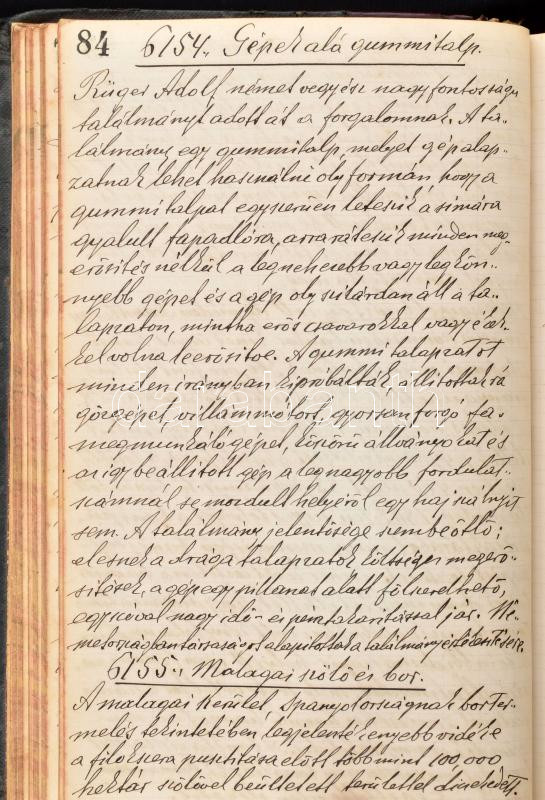 84
6154. Gépek alá gummitalp.
Rüger Adolf német vegyész nagyfontosságu
találmányt adott át a forgalomnak. A ta-
lálmány egy gummitalp, melyet gépalap-
zatnak lehet használni oly formán hogy a
gummitalpat egyszerűen leteszik a simára
gyalult fapadlóra, arra ráteszik minden meg-
erősités nélkül a legnehezebb vagy legkön-
nyebb gépet és a gép oly szilárdan áll a ta-
lapzaton, mintha erős csavarokkal vagy ékek-
kel volna leerősitve. A gummi talapzatot
minden irányban kipróbálták, állitottak rá
gőzgépet, villammótort, gyorsan forgó fa-
megmunkáló gépet, köszörű állványokat és
az igy beállitott gép a legnagyobb fordulat-
számnál se mordult helyéről egy hajszálnyit
sem. A találmány jelentősége szembeötlő;
elesnek a drága talapzatok költséges megerő-
sitések, a gép egy pillanat alatt fölszerelhető,
egyszóval nagy idő- és pénztakaritással jár. Né-
metországban társaságot alapitottak a találmány értékesitésére.
6155. Malagai szőlő és bor.
A malagai kerület, Spanyolországnak borter-
melés tekintetében legjelentékenyebb vidéke
a filoksera pusztitása előtt több mint 100,000
hektár szőlővel beültetett területtel dicsekedett.
darabanth